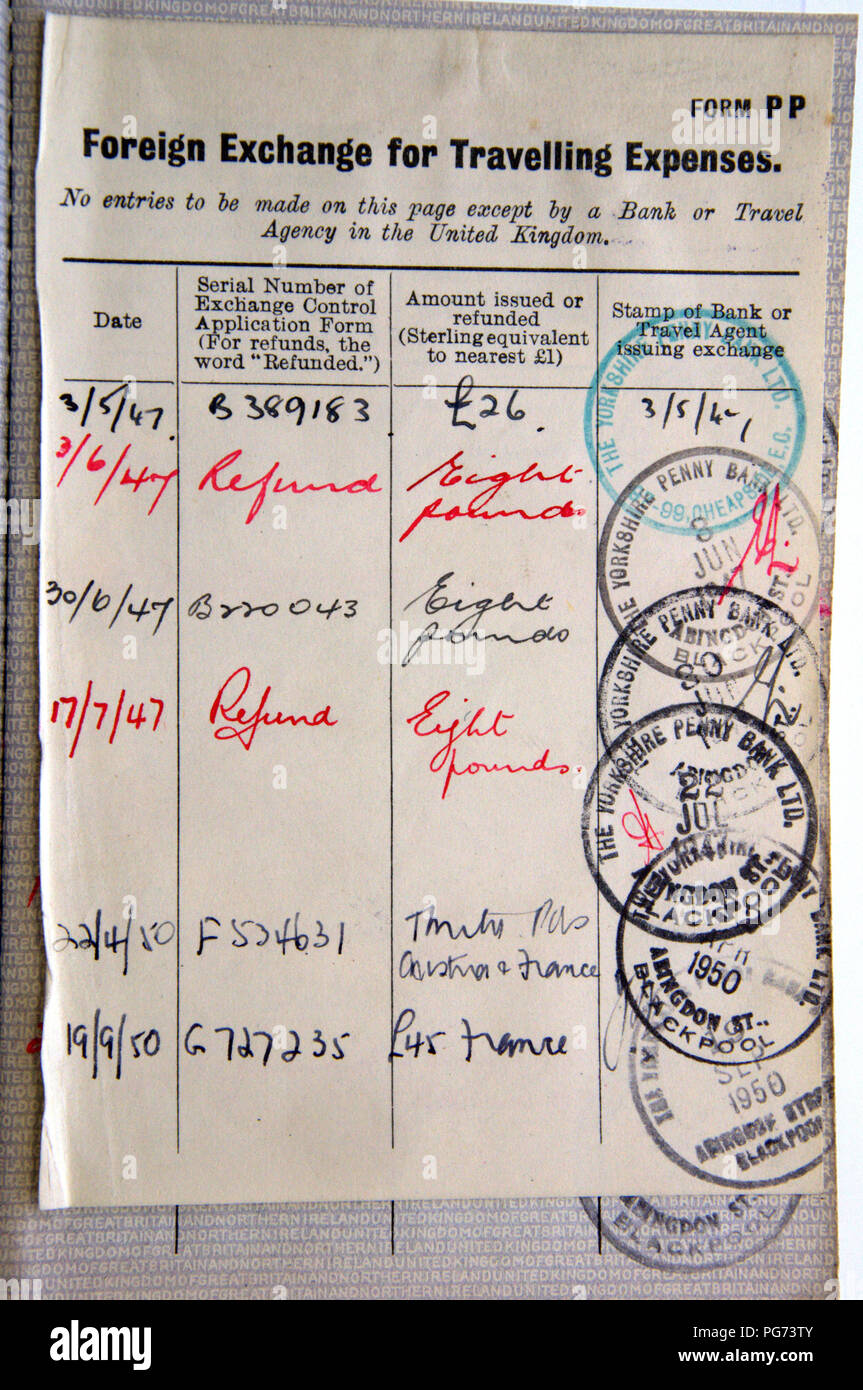 FORM PP
Foreign Exchange for Travelling Expenses.
No entries to be made on this page except by a Bank or Travel
Agency in the United Kingdom.
Date
Serial Number of
Exchange Control
Application Form
(For refunds, the
word "Refunded.")
Amount issued or
refunded
(Sterling equivalent
to nearest £1)
Stamp of Bank or
Travel Agent
issuing exchange
3/5/47. B 389183 £26. 3/5/47
3/6/47 Refund Eight
pounds
30/6/47 B220043 Eight
pounds
17/7/47 Refund Eight
pounds.
22/4/50 F 534631 Thirty Pds
Austria & France
19/9/50 G 727235 £45 France
THE YORKSHIRE PENNY BANK LTD.
99, CHEAPSIDE E.C.
THE YORKSHIRE PENNY BANK LTD.
JUN
ABINGDON ST.
BLACKPOOL
THE YORKSHIRE PENNY BANK LTD.
30
ABINGDON
THE YORKSHIRE PENNY BANK LTD.
22
JUL
BLACKPOOL
BANK LTD.
APR
1950
ABINGDON ST.,
BLACKPOOL
SEP
1950
ABINGDON STREET
BLACKPOOL
ABINGDON ST.
BLACKPOOL
UNITEDKINGDOMOFGREATBRITAINANDNORTHERNIRELAND
alamy
Image ID: PG73TY
www.alamy.com